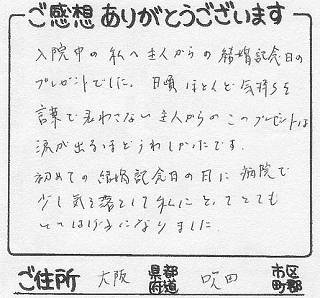 ご感想ありがとうございます
入院中の私へ主人からの結婚記念日の
プレゼントでした。日頃ほとんど気持ちを
言葉で表わさない主人からのこのプレゼントは
涙が出るほどうれしかったです。
初めての結婚記念日の日に病院で
少し気を落として私にとってとても
になりました
ご住所 大阪 都道府県 吹田 市区町郡